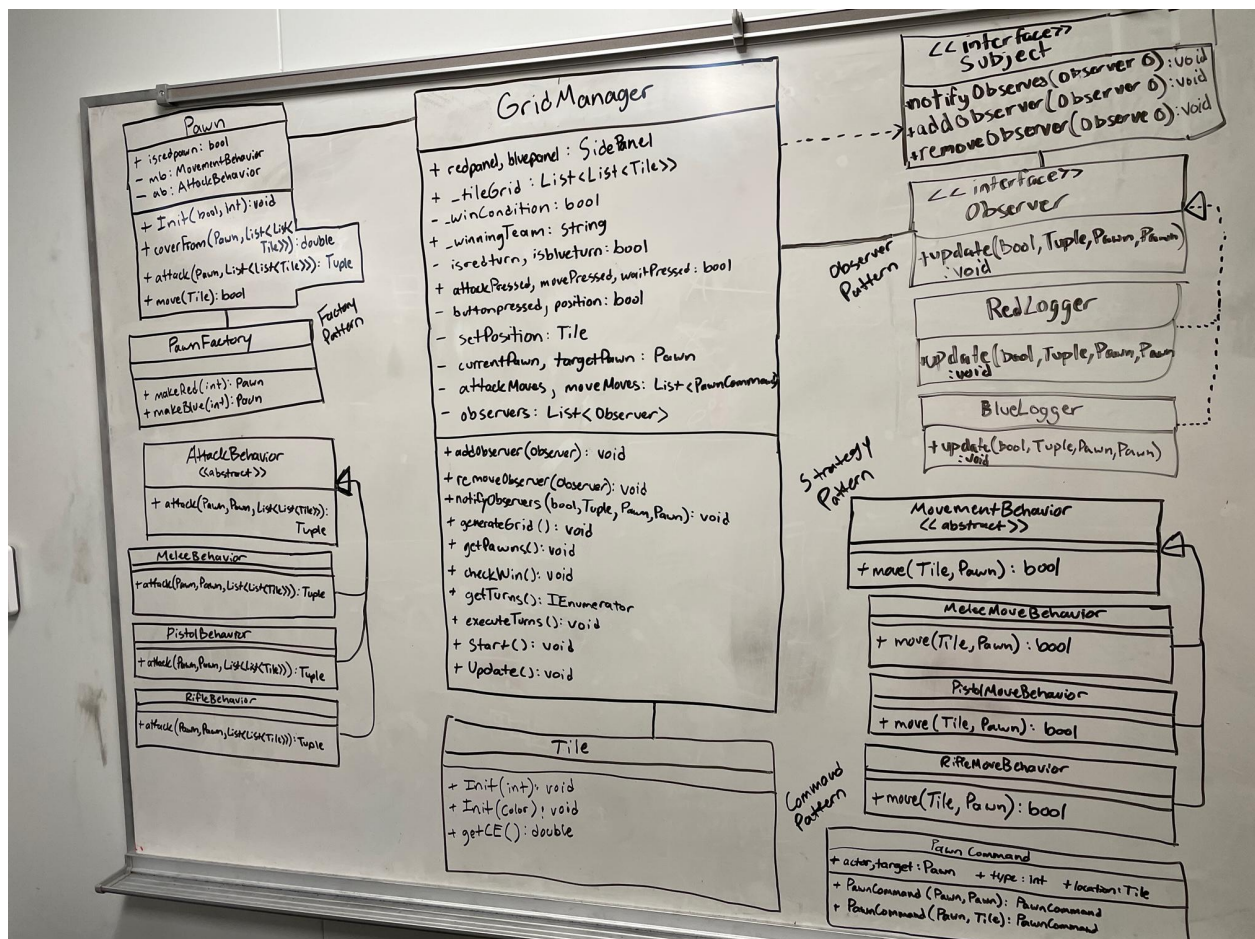 Pawn
+ isredpawn: bool
- mb: MovementBehavior
- ab: AttackBehavior
+ Init(bool, int): void
+ coverFrom(Pawn, List<List<
Tile>>): double
+ attack(Pawn, List<List<Tile>>): Tuple
+ move(Tile): bool
Factory
Pattern
PawnFactory
+ makeRed(int): Pawn
+ makeBlue(int): Pawn
AttackBehavior
<<abstract>>
+ attack(Pawn, Pawn, List<List<Tile>>):
Tuple
MeleeBehavior
+ attack(Pawn, Pawn, List<List<Tile>>): Tuple
PistolBehavior
+ attack(Pawn, Pawn, List<List<Tile>>): Tuple
RifleBehavior
+ attack(Pawn, Pawn, List<List<Tile>>): Tuple
GridManager
+ redpanel, bluepanel : SidePanel
+ _tileGrid : List<List<Tile>>
- _winCondition : bool
+ _winningTeam : string
- isredturn, isblueturn : bool
+ attackPressed, movePressed, waitPressed : bool
- buttonpressed, position : bool
- setPosition : Tile
- currentPawn, targetPawn : Pawn
- attackMoves, moveMoves: List<PawnCommand>
- observers: List<Observer>
+ addObserver(observer): void
+ removeObserver(Observer): void
+ notifyObservers(bool, Tuple, Pawn, Pawn): void
+ generateGrid(): void
+ getPawns(): void
+ checkWin(): void
+ getTurns(): IEnumerator
+ executeTurns(): void
+ Start(): void
+ Update(): void
Tile
+ Init(int): void
+ Init(Color): void
+ getCE(): double
<<interface>>
Subject
+notifyObserves(Observer O): void
+addObserver(Observer O): void
+removeObserver(Observe O): void
Observer
Pattern
<<interface>>
Observer
+update(Bool, Tuple, Pawn, Pawn)
: void
RedLogger
+update(bool, Tuple, Pawn, Pawn
: void
BlueLogger
+update(bool, Tuple, Pawn, Pawn)
: void
Strategy
Pattern
MovementBehavior
<<abstract>>
+ move(Tile, Pawn): bool
MeleeMoveBehavior
+ move(Tile, Pawn): bool
PistolMoveBehavior
+ move(Tile, Pawn): bool
RifleMoveBehavior
+ move(Tile, Pawn): bool
Command
Pattern
Pawn Command
+ actor, target : Pawn + type : int + location : Tile
+ PawnCommand(Pawn, Pawn): PawnCommand
+ PawnCommand(Pawn, Tile): PawnCommand